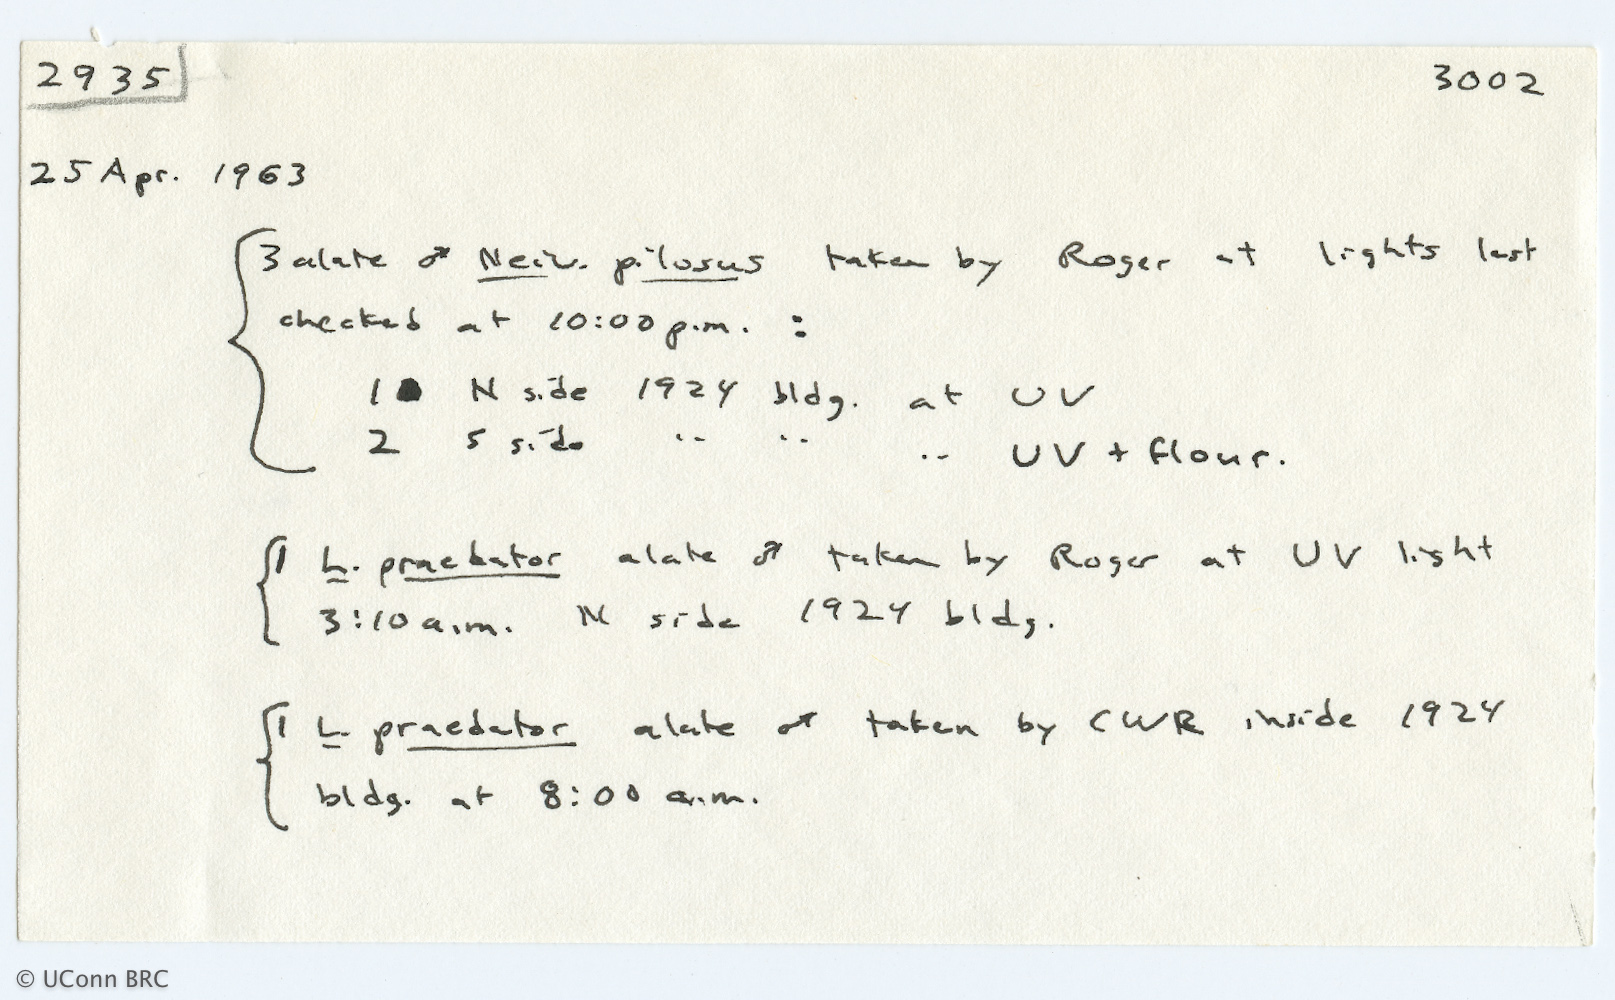 2935 3002
25 Apr. 1963
3 alate ♂ Neiv. pilosus taken by Roger at lights last
checked at 10:00 p.m. :
1 N side 1924 bldg. at UV
2 S side " " " UV + flour.
1 L. praedator alate ♂ taken by Roger at UV light
3:10 a.m. N side 1924 bldg.
1 L. praedator alate ♂ taken by CWR inside 1924
bldg. at 8:00 a.m.
© UConn BRC